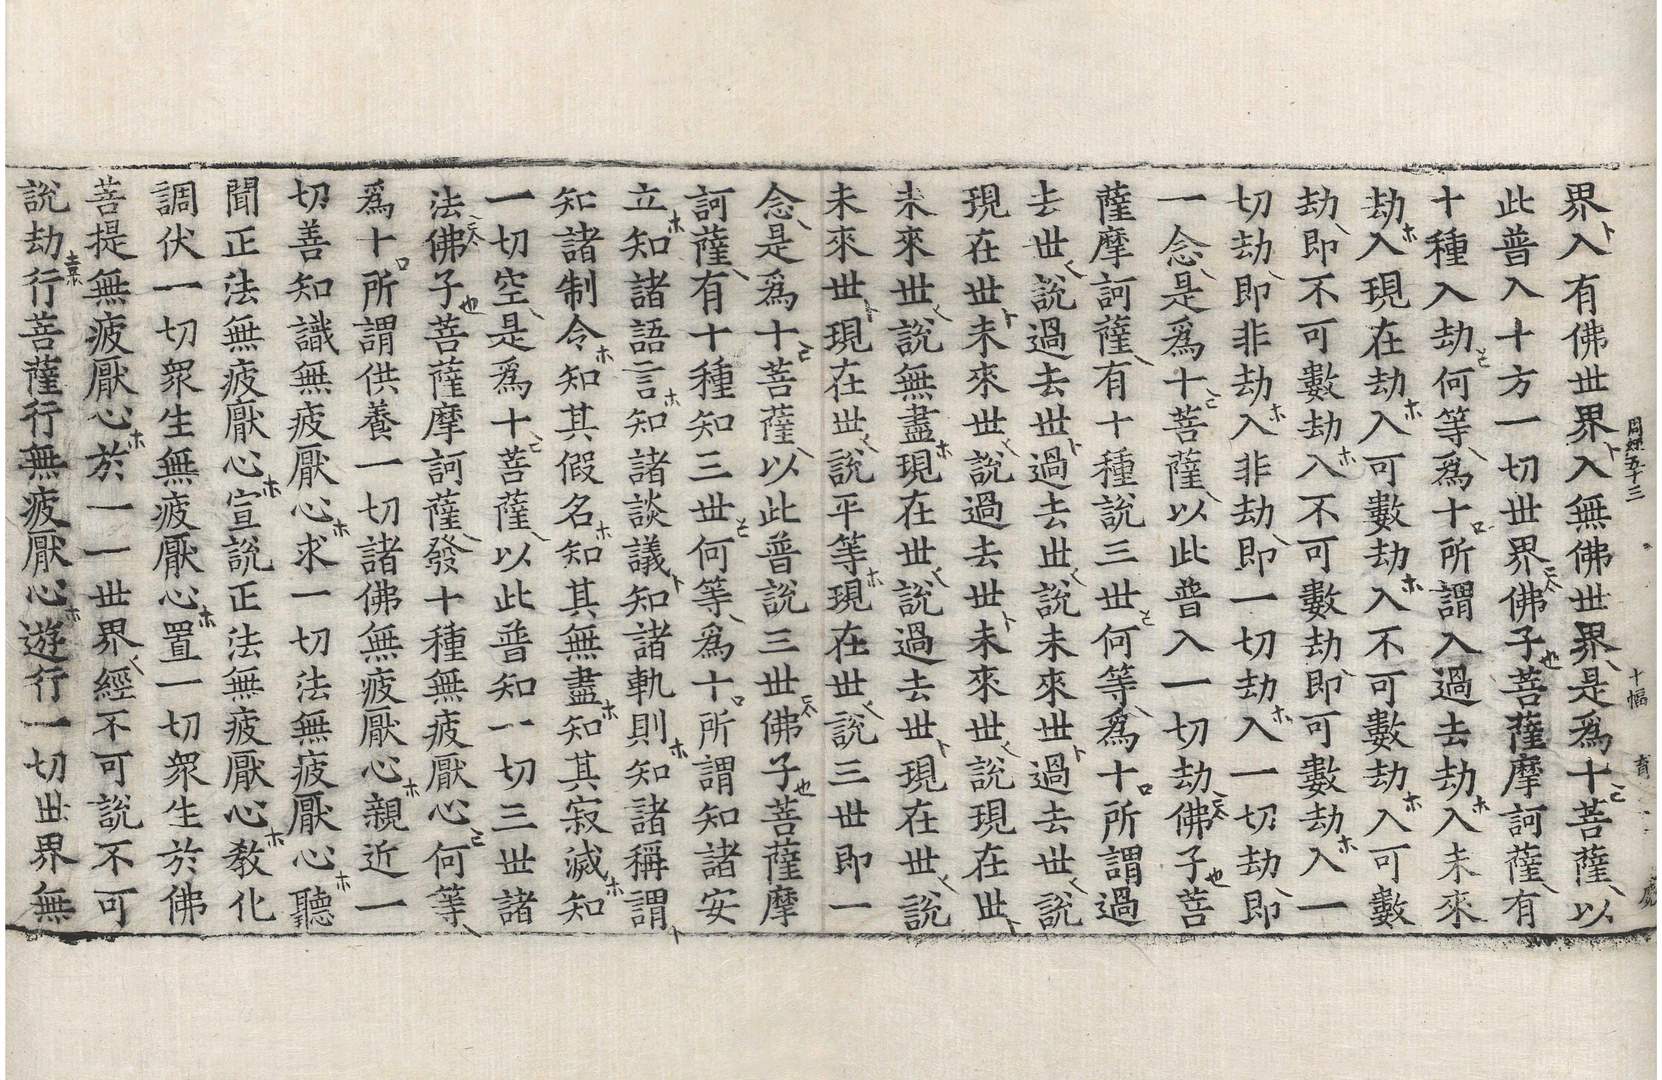 界入有佛世界入無佛世界是爲十菩薩以
此普入十方一切世界佛子菩薩摩訶薩有
十種入劫何等爲十所謂入過去劫入未來
劫入現在劫入可數劫入不可數劫入可數
劫即不可數劫入不可數劫即可數劫入一
切劫即非劫入非劫即一切劫入一切劫即
一念是爲十菩薩以此普入一切劫佛子菩
薩摩訶薩有十種說三世何等爲十所謂過
去世說過去世過去世說未來世過去世說
現在世未來世說過去世未來世說現在世
未來世說無盡現在世說過去世現在世說
未來世現在世說平等現在世說三世即一
念是爲十菩薩以此普說三世佛子菩薩摩
訶薩有十種知三世何等爲十所謂知諸安
立知諸語言知諸談議知諸軌則知諸稱謂
知諸制令知其假名知其無盡知其寂滅知
一切空是爲十菩薩以此普知一切三世諸
法佛子菩薩摩訶薩發十種無疲厭心何等
爲十所謂供養一切諸佛無疲厭心親近一
切善知識無疲厭心求一切法無疲厭心聽
聞正法無疲厭心宣說正法無疲厭心教化
調伏一切眾生無疲厭心置一切眾生於佛
菩提無疲厭心於一一世界經不可說不可
說劫行菩薩行無疲厭心遊行一切世界無
周經五十三 十幅